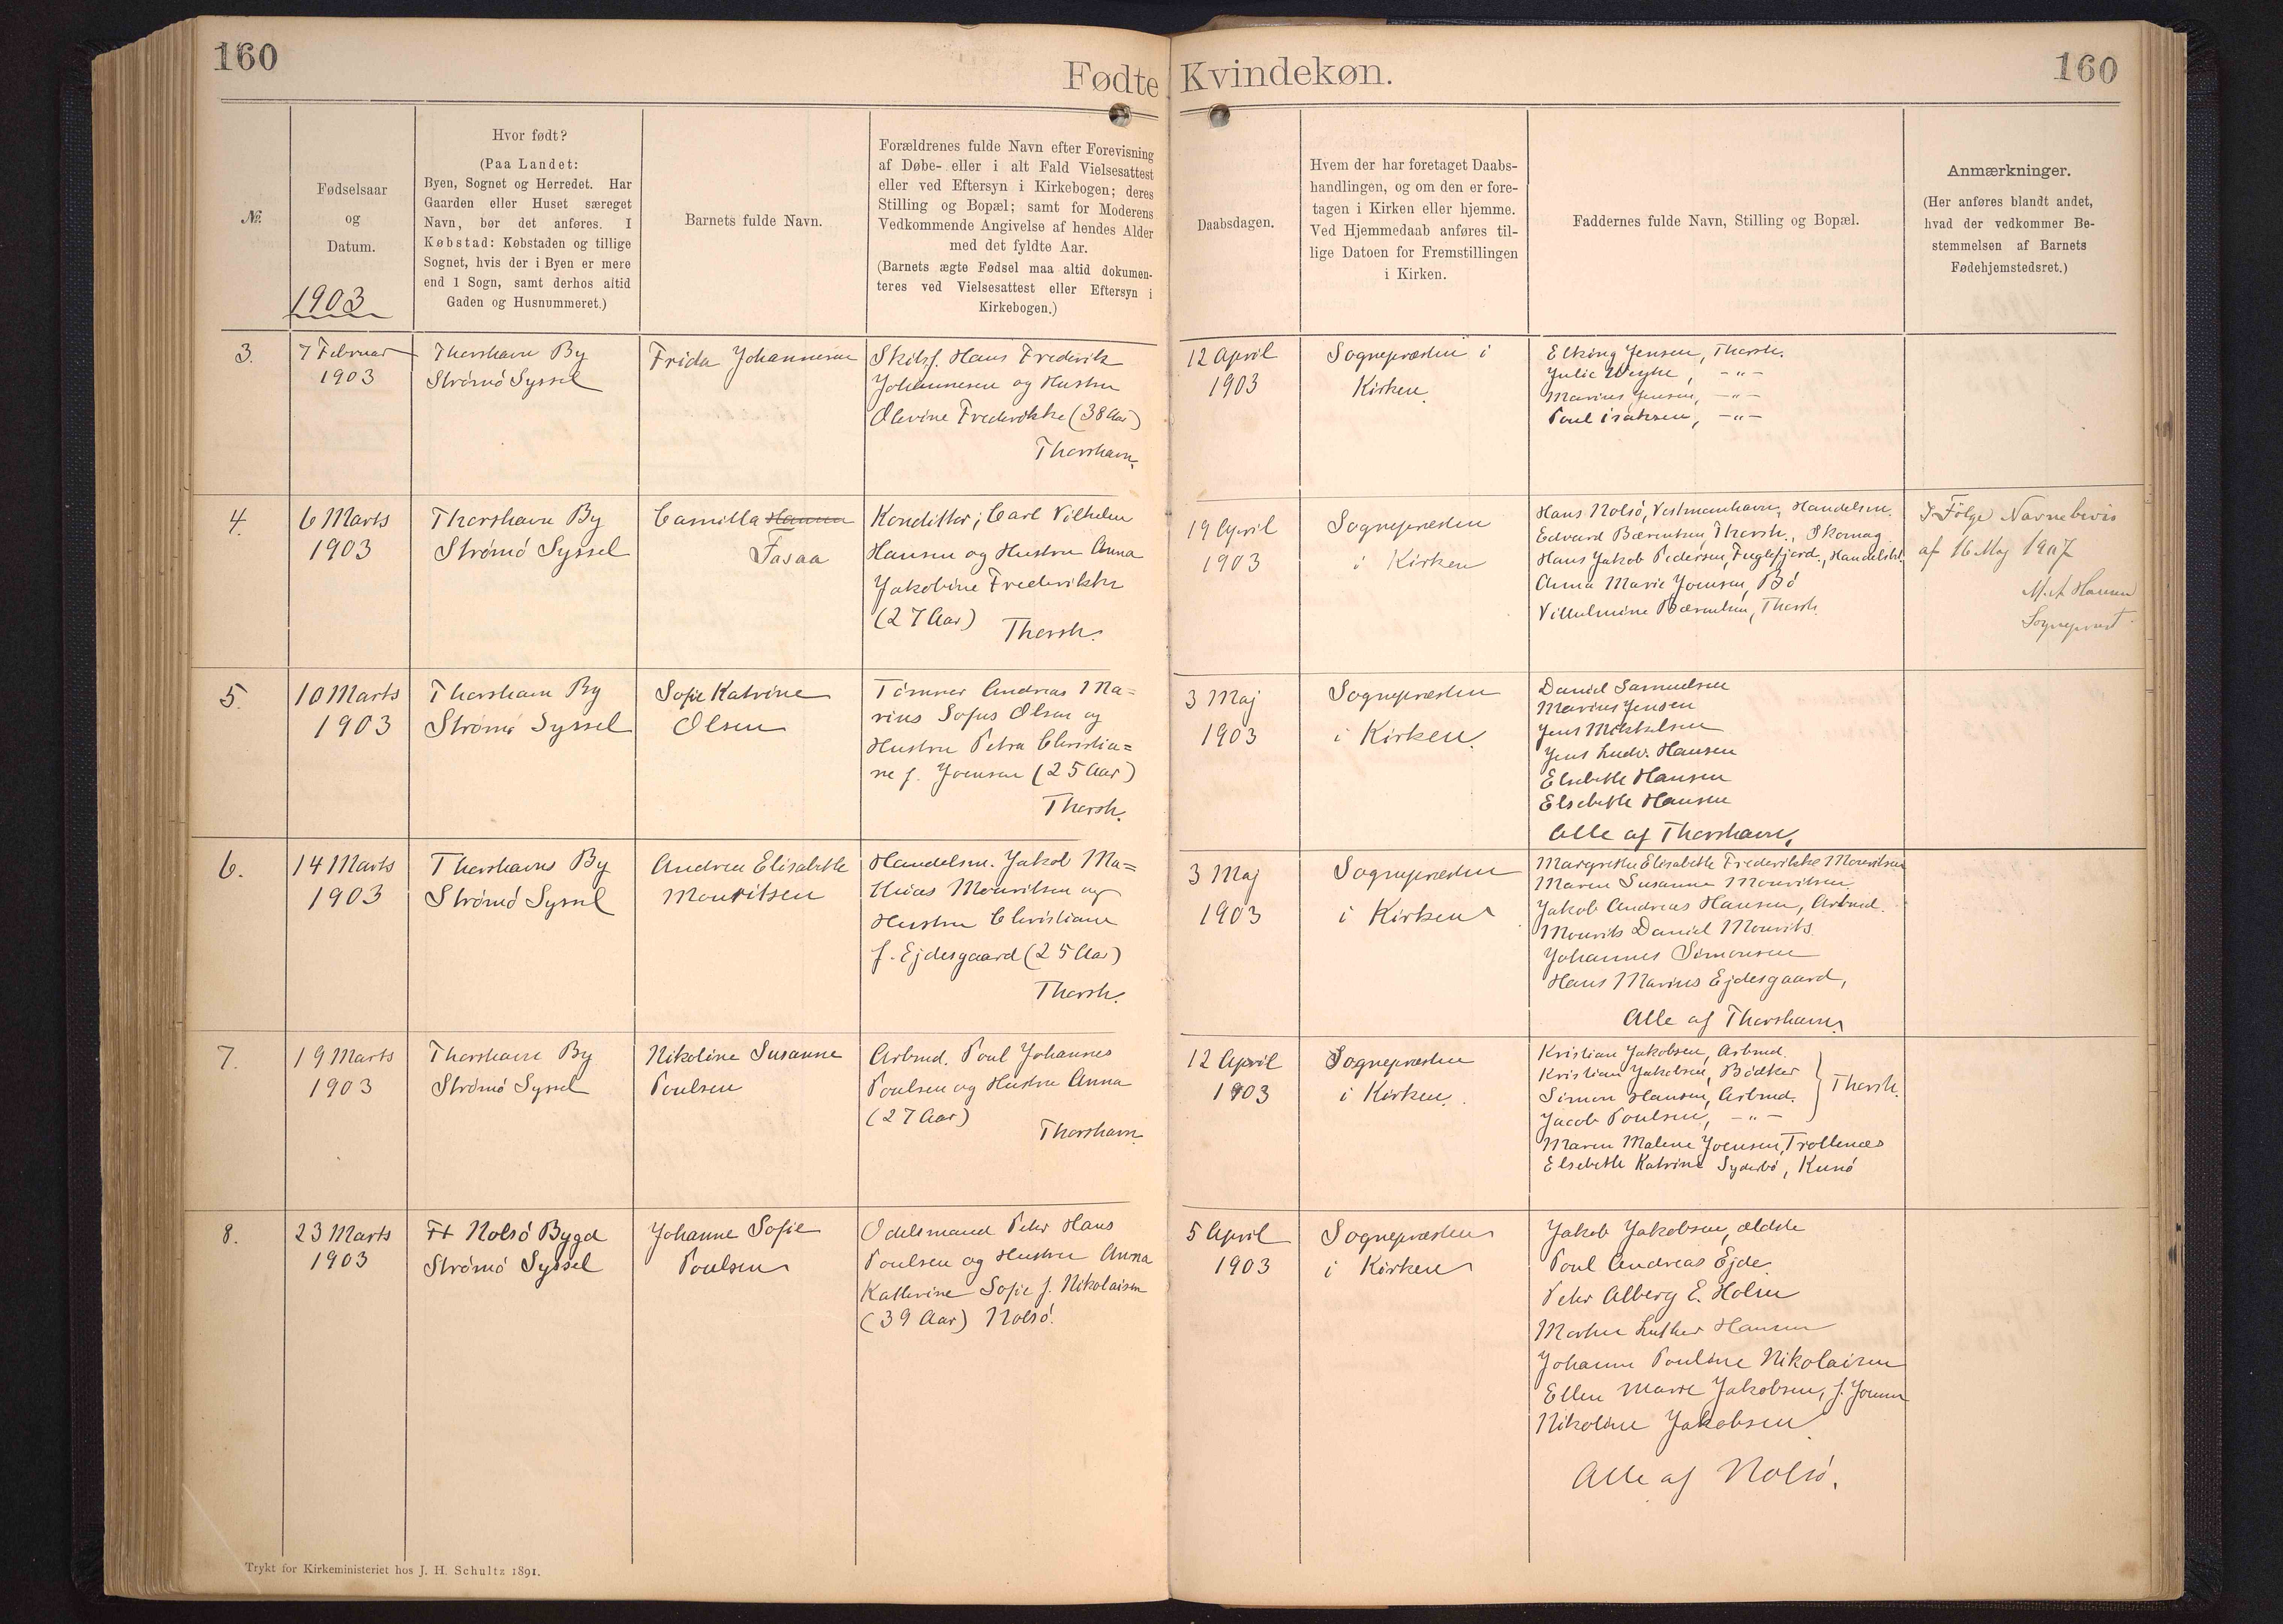 160
Fødte Kvindekøn.
160
№.
Fødselsaar
og
Datum.
1903
Hvor født?
(Paa Landet:
Byen, Sognet og Herredet. Har
Gaarden eller Huset særeget
Navn, bør det anføres. I
Købstad: Købstaden og tillige
Sognet, hvis der i Byen er mere
end 1 Sogn, samt derhos altid
Gaden og Husnummeret.)
Barnets fulde Navn.
Forældrenes fulde Navn efter Forevisning
af Døbe- eller i alt Fald Vielsesattest
eller ved Eftersyn i Kirkebogen; deres
Stilling og Bopæl; samt for Moderens
Vedkommende Angivelse af hendes Alder
med det fyldte Aar.
(Barnets ægte Fødsel maa altid dokumen-
teres ved Vielsesattest eller Eftersyn i
Kirkebogen.)
Daabsdagen.
Hvem der har foretaget Daabs-
handlingen, og om den er fore-
tagen i Kirken eller hjemme.
Ved Hjemmedaab anføres til-
lige Datoen for Fremstillingen
i Kirken.
Faddernes fulde Navn, Stilling og Bopæl.
Anmærkninger.
(Her anføres blandt andet,
hvad der vedkommer Be-
stemmelsen af Barnets
Fødehjemstedsret.)
3.
7 Februar
1903
Thorshavn By
Strømø Syssel
Frida Johannesen
Hans Frederik
Johannesen og Hustru
Olevine Frederikke (38 Aar)
Thorshavn.
12 April
1903
Sognepræsten i
Kirken.
Elking Jensen, Thorsh.
Julie Weyhe, -"-
Marius Jensen, -"-
Poul Isaksen, -"-
4.
6 Marts
1903
Thorshavn By
Strømø Syssel
Camilla Hansen
Fasaa
Konditter, Carl Vilhelm
Hansen og Hustru Anna
Jakobine Frederikke
(27 Aar)
Thorsh.
19 April
1903
Sognepræsten
i Kirken
Hans Nolsø, Vestmanhavn, Handelsm.
Edvard Bærentsen Thorsh., Skomag.
Hans Jakob Pedersen, Fuglefjord,
Anna Marie Joensen, Bø
Vilhelmine Bærentsen, Thorsh.
I Følge Navnebevis
af 16 Maj 1907
M. A. Hansen
Sognepræst.
5.
10 Marts
1903
Thorshavn By
Strømø Syssel
Sofie Katrine
Olsen
Tømrer Andreas Ma=
rius Sofus Olsen og
Hustru Petra Christia=
ne f. Joensen (25 Aar)
Thorsh.
3 Maj
1903
Sognepræsten
i Kirken.
Daniel Samuelsen
Marius Jensen
Jens Mikkelsen
Jens Ludv. Hansen
Elsebeth Hansen
Elsebeth Hansen
Alle af Thorshavn,
6.
14 Marts
1903
Thorshavns By
Strømø Syssel
Andrea Elisabeth
Mouritsen
Handelsm. Jakob Ma=
thias Mouritsen og
Hustru Christiane
f. Ejdesgaard (25 Aar)
Thorsh.
3 Maj
1903
Sognepræsten
i Kirken
Margrethe Elisabeth Frederikke Mouritsen
Maren Susanne Mouritsen
Jakob Andreas Hansen, Arbmd.
Mourits Daniel Mourits.
Johannes Simonsen
Hans Marius Ejdesgaard,
Alle af Thorshavn.
7.
19 Marts
1903
Thorshavn By
Strømø Syssel
Nikoline Susanne
Poulsen
Arbmd. Poul Johannes
Poulsen og Hustru Anna
(27 Aar)
Thorshavn
12 April
1903
Sognepræsten
i Kirken.
Kristian Jakobsen, Arbmd.
Kristian Jakobsen, Bødker
Simon Hansen, Arbmd.
Jacob Poulsen, -"-
Thorsh.
Maren Malene Joensen, Trollenæs
Elsebeth Katrine Syderbø, Kunø
8.
23 Marts
1903
Nolsø Bygd
Strømø Syssel
Johanne Sofie
Poulsen
Odelsmand Peter Hans
Poulsen og Hustru Anna
Katherine Sofie f. Nikolaisen
(39 Aar) Nolsø.
5 April
1903
Sognepræsten
i Kirken
Jakob Jakobsen, ældste
Poul Andreas Ejde
Peter Alberg E. Holm
Morten Luther Hansen
Johanne Pouline Nikolaisen
Ellen Marie Jakobsen, f. Joensen
Nikoline Jakobsen
Alle af Nolsø.
Trykt for Kirkeministeriet hos J. H. Schultz 1891.